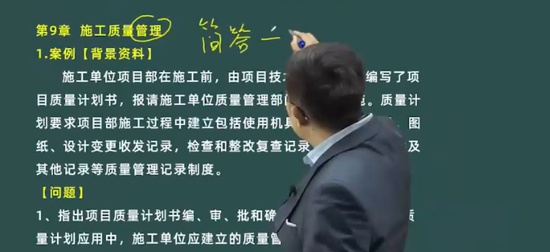 第9章 施工质量管理
简答一
1.案例【背景资料】
施工单位项目部在施工前，由项目技 编写了项
目质量计划书，报请施工单位质量管理部 施。质量计
划要求项目部施工过程中建立包括使用机具 图
纸、设计变更收发记录，检查和整改复查记录 及
其他记录等质量管理记录制度。
【问题】
1、指出项目质量计划书编、审、批和确 质
量计划应用中，施工单位应建立的质量管